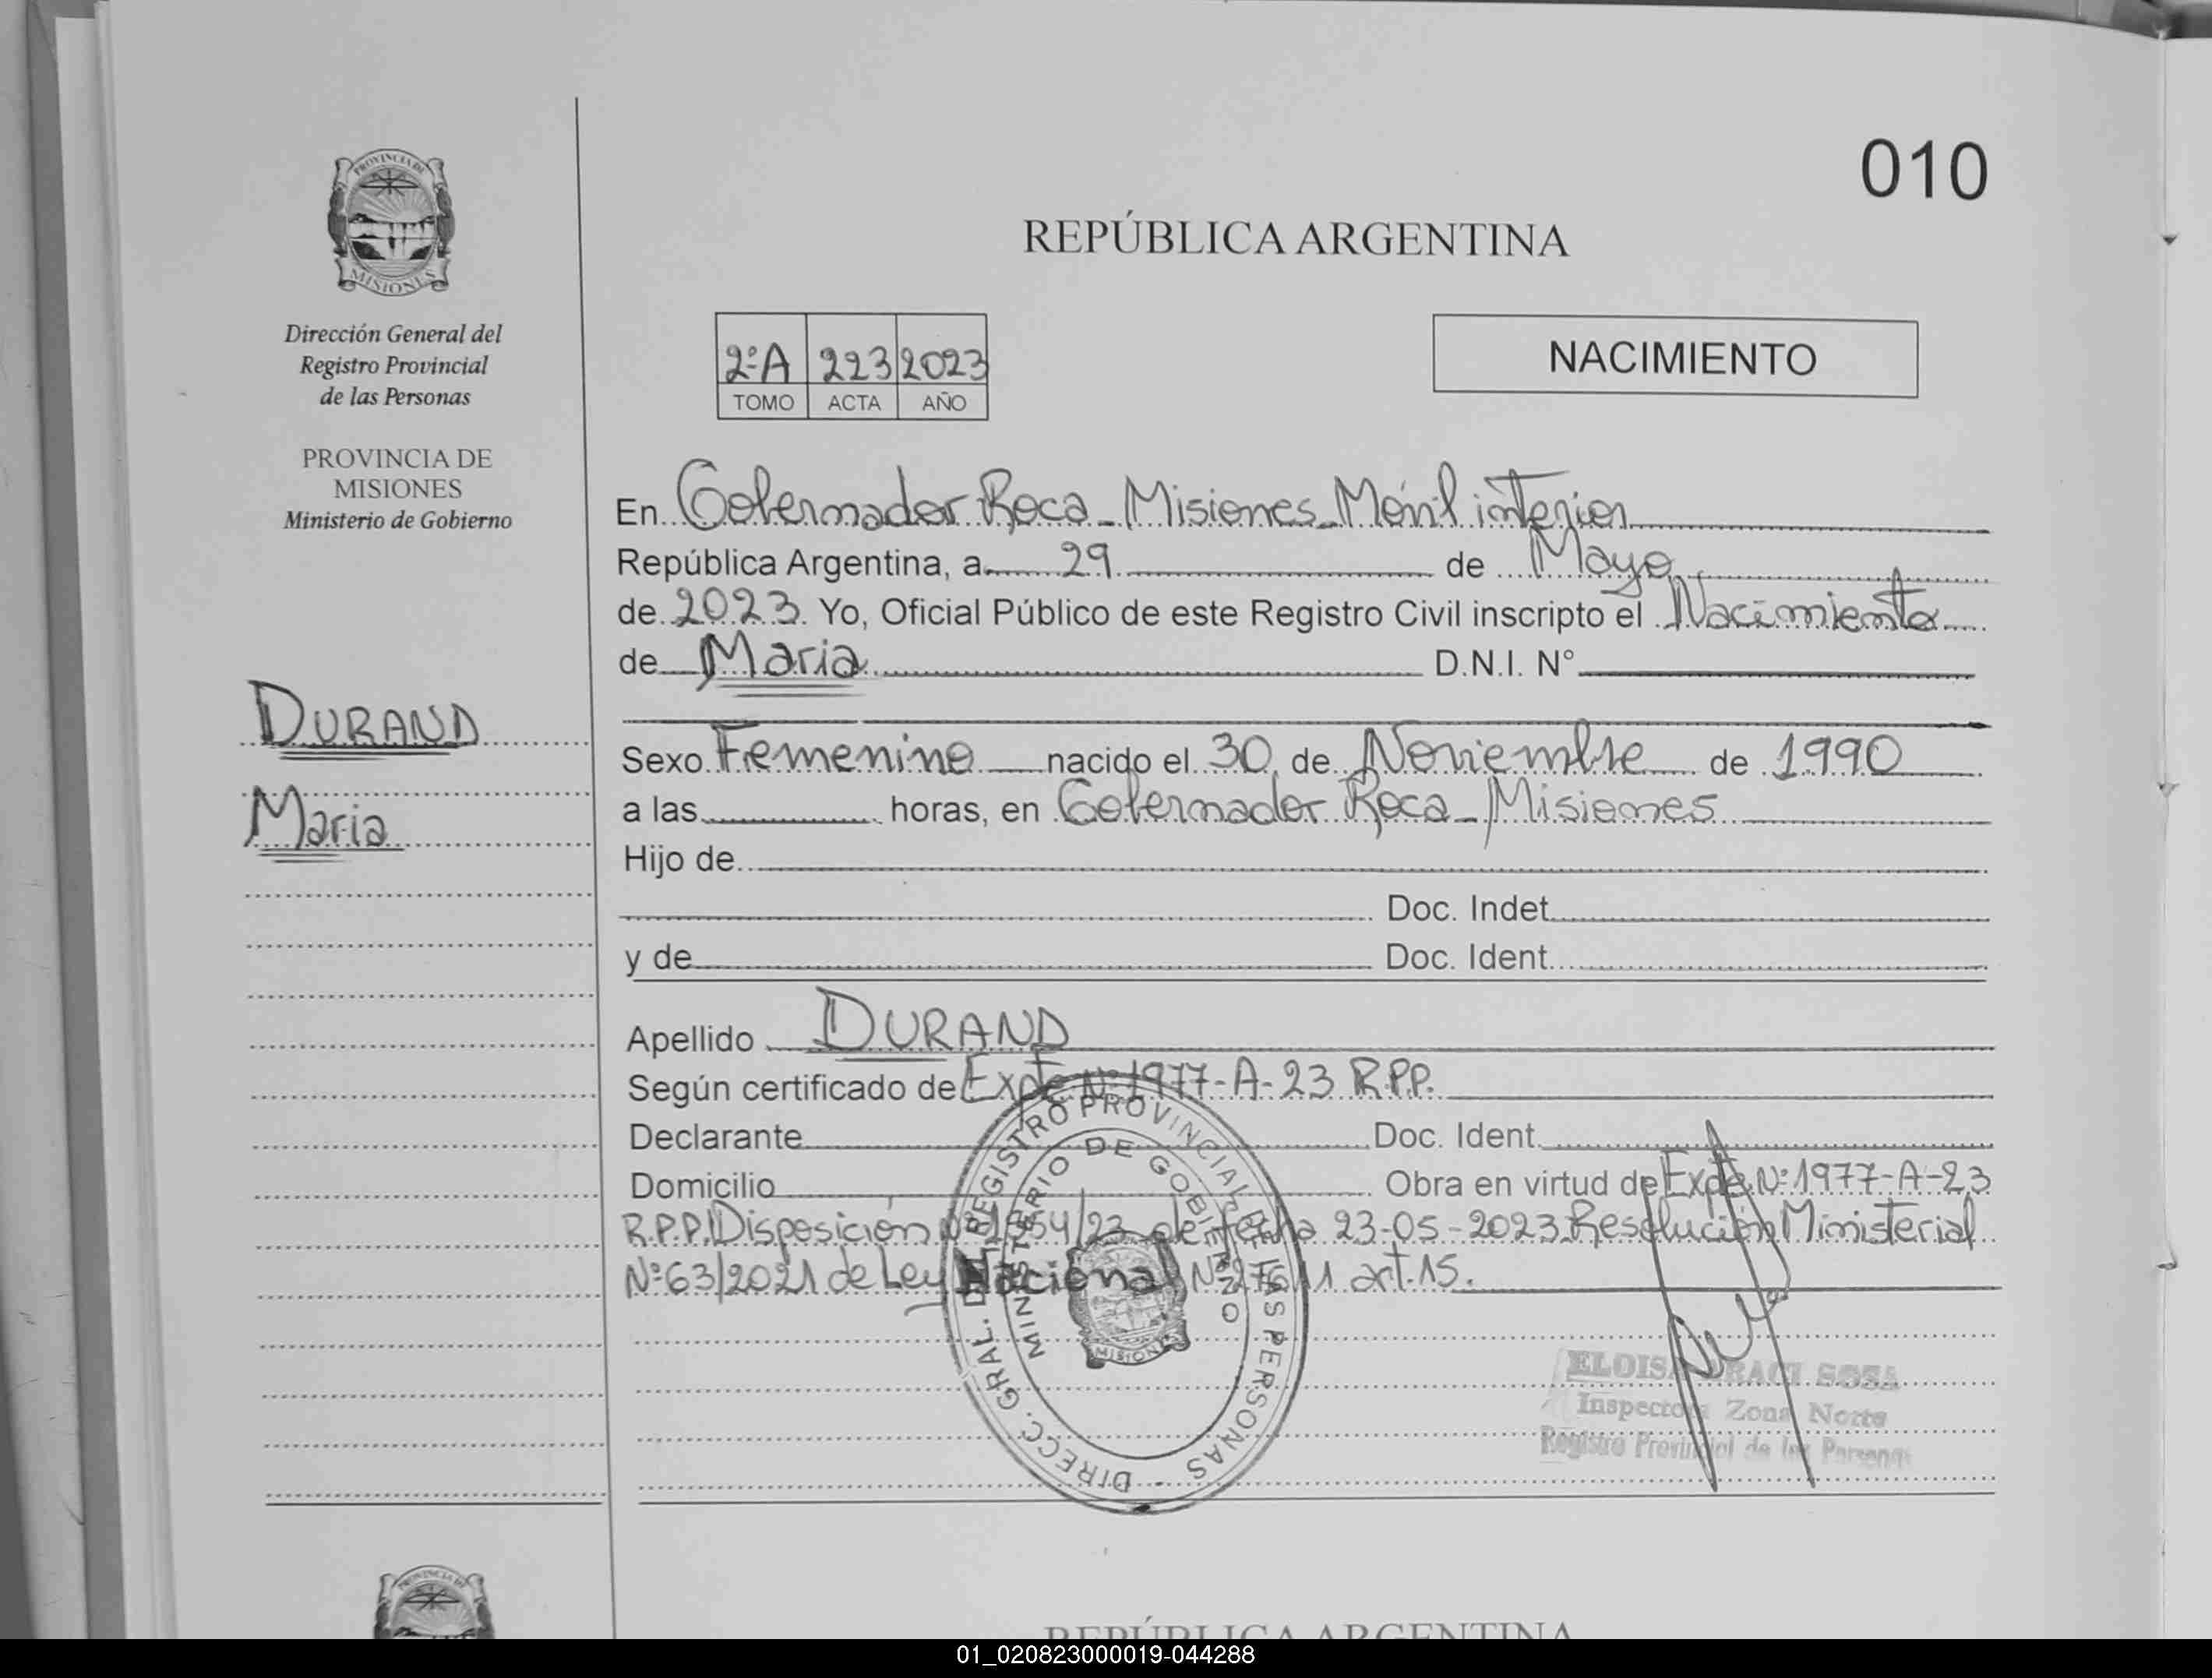 010
REPÚBLICA ARGENTINA
PROVINCIA DE
MISIONES
Dirección General del
Registro Provincial
de las Personas
PROVINCIA DE
MISIONES
Ministerio de Gobierno
DURAND
Maria
2ºA 223 2023
TOMO ACTA AÑO
NACIMIENTO
En Gobernador Roca - Misiones - Móvil interior
República Argentina, a 29 de Mayo
de 2023 Yo, Oficial Público de este Registro Civil inscripto el Nacimiento
de Maria D.N.I. N°
Sexo Femenino nacido el 30 de Noviembre de 1990
a las horas, en Gobernador Roca - Misiones
Hijo de
Doc. Indet
y de Doc. Ident.
Apellido DURAND
Según certificado de Expte Nº 1977-A-23 R.P.P.
Declarante Doc. Ident.
Domicilio Obra en virtud de Expte Nº 1977-A-23
R.P.P. Disposición Nº 54/23 de fecha 23-05-2023 Resolución Ministerial
Nº 63/2021 de Ley Nacional Nº art. 15.
DIRECC. GRAL. DEL REGISTRO PROVINCIAL DE LAS PERSONAS -
MINISTERIO DE GOBIERNO
MISIONES
ELOISA SOSA
Inspectora Zona Norte
Registro Provincial de las Personas
PROVINCIA DE
REPÚBLICA ARGENTINA
01_020823000019-044288